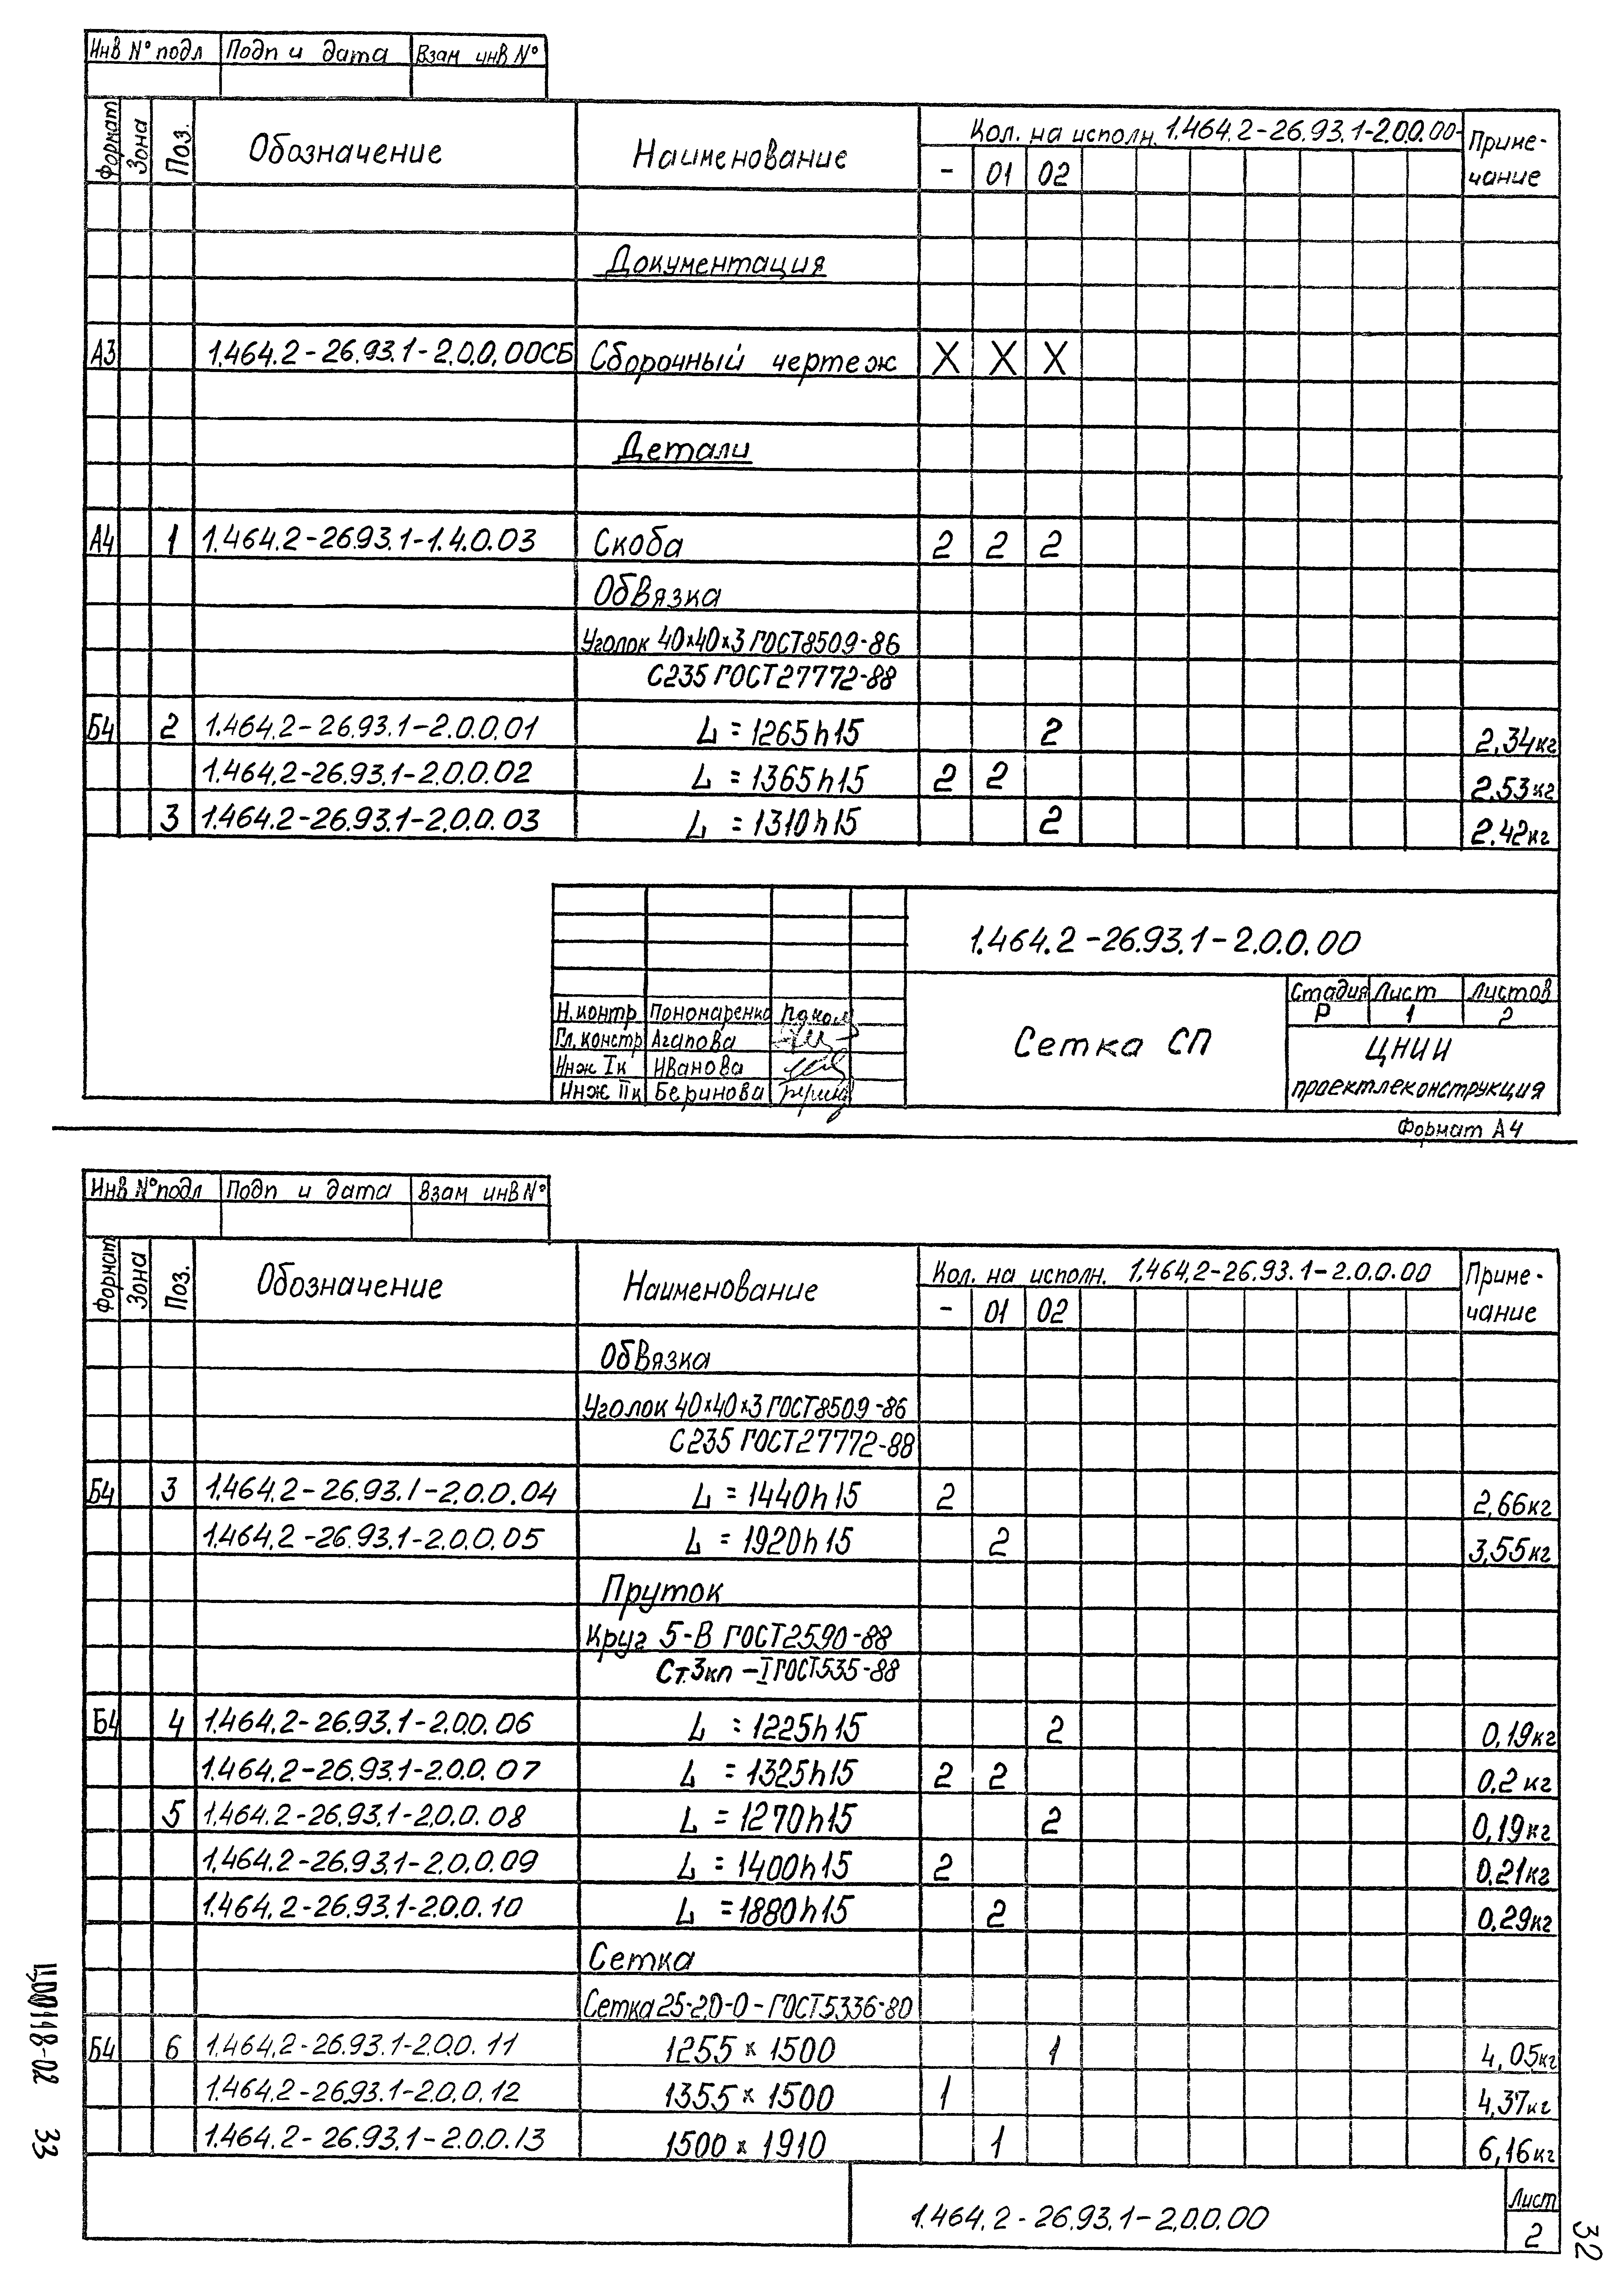 Инв № подл Подп и дата Взам инв №
Формат Зона Поз. Обозначение Наименование Кол. на исполн. 1.464.2-26.93.1-2.0.0.00- Приме-
- 01 02 чание
Документация
А3 1.464.2-26.93.1-2.0.0.00СБ Сборочный чертеж X X X
Детали
А4 1 1.464.2-26.93.1-1.4.0.03 Скоба 2 2 2
Обвязка
Уголок 40×40×3 ГОСТ8509-86
С235 ГОСТ27772-88
Б4 2 1.464.2-26.93.1-2.0.0.01 L = 1265h15 2 2,34кг
1.464.2-26.93.1-2.0.0.02 L = 1365h15 2 2 2.53кг
3 1.464.2-26.93.1-2.0.0.03 L = 1310h15 2 2.42кг
1.464.2-26.93.1-2.0.0.00
Стадия Лист Листов
Н.контр Пономаренко Р 1 2
Гл.констр Агапова Сетка СП ЦНИИ
Инж Iк Иванова
Инж IIк Беринова проектлеконструкция
Формат А4
Инв № подл Подп и дата Взам инв №
Формат Зона Поз. Обозначение Наименование Кол. на исполн. 1.464.2-26.93.1-2.0.0.00 Приме-
- 01 02 чание
Обвязка
Уголок 40×40×3 ГОСТ8509-86
С235 ГОСТ27772-88
Б4 3 1.464.2-26.93.1-2.0.0.04 L = 1440h15 2 2,66кг
1.464.2-26.93.1-2.0.0.05 L = 1920h15 2 3,55кг
Пруток
Круг 5-В ГОСТ2590-88
Ст.3кп-I ГОСТ535-88
Б4 4 1.464.2-26.93.1-2.0.0.06 L = 1225h15 2 0,19кг
1.464.2-26.93.1-2.0.0.07 L = 1325h15 2 2 0.2 кг
5 1.464.2-26.93.1-2.0.0.08 L = 1270h15 2 0,19кг
1.464.2-26.93.1-2.0.0.09 L = 1400h15 2 0.21кг
1.464.2-26.93.1-2.0.0.10 L = 1880h15 2 0.29кг
Сетка
Сетка 25-2,0-0-ГОСТ5336-80
Б4 6 1.464.2-26.93.1-2.0.0.11 1255 × 1500 1 4,05кг
1.464.2-26.93.1-2.0.0.12 1355 × 1500 1 4,37кг
1.464.2-26.93.1-2.0.0.13 1500 × 1910 1 6,16кг
1.464.2-26.93.1-2.0.0.00 Лист
2
ЦО0118-02 33
32